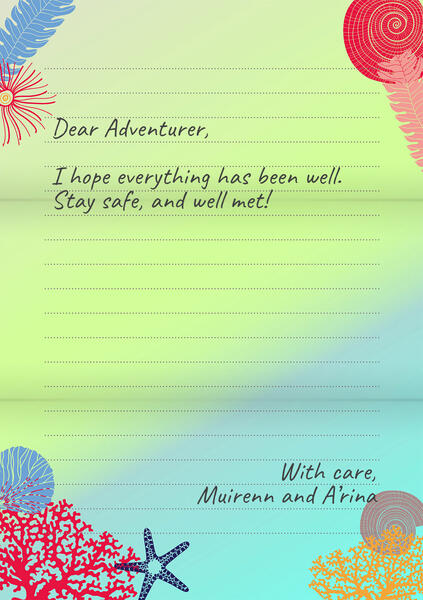 Dear Adventurer,
I hope everything has been well.
Stay safe, and well met!
With care,
Muirenn and A'rina